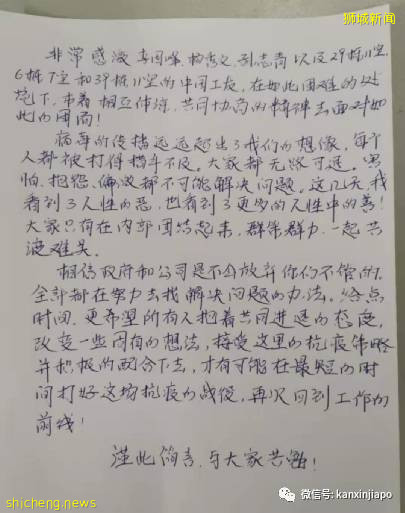 狮城新闻
非常感激李国峰、杨忠义、孙志青以及29栋11室
6栋7室和39栋11室的中国工友，在如此困难的处
境下，本着相互体谅，共同协商的精神去面对如
此的困局！
病毒的传播远远超出了我们的想像，每个
人都被打得措手不及。大家都无路可退。害
怕、抱怨、偏激都不可能解决问题。这几天，我
看到了人性的恶，也看到了更多的人性中的善！
大家只有在内部团结起来，群策群力，一起共
渡难关。
相信政府和公司是不会放弃你们不管的，
全部都在努力去找解决问题的办法。给点
时间，更希望所有人抱着共同进退的态度，
改变一些固有的想法，接受这里的抗疫策略
并积极的配合下去，才有可能在最短的时
间打好这场抗疫的战役，再次回到工作的
前线！
谨此简言，与大家共勉！
shicheng.news
微信号: kanxinjiapo